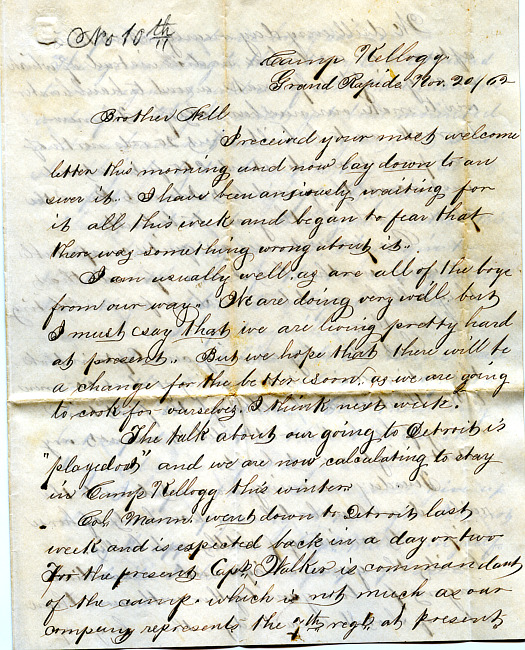 No 10th
Camp Kellogg
Grand Rapids Nov. 20/62
Brother Fell
I received your most welcome
letter this morning and now lay down to an
swer it. I have been anxiously waiting for
it all this week and began to fear that
there was something wrong about it.
I am usually well. as are all of the boys
from our way. We are doing very well but
I must say that we are living pretty hard
at present. But we hope that there will be
a change for the better soon. as we are going
to cook for ourselves. I think next week.
The talk about our going to Detroit is
"played out" and we are now calculating to stay
in Camp Kellogg this winter.
Col. Mann. went down to Detroit last
week and is expected back in a day or two
For the present Capt. Walker is commandant
of the camp. which is not much as our
company represents the 7th regt. at present